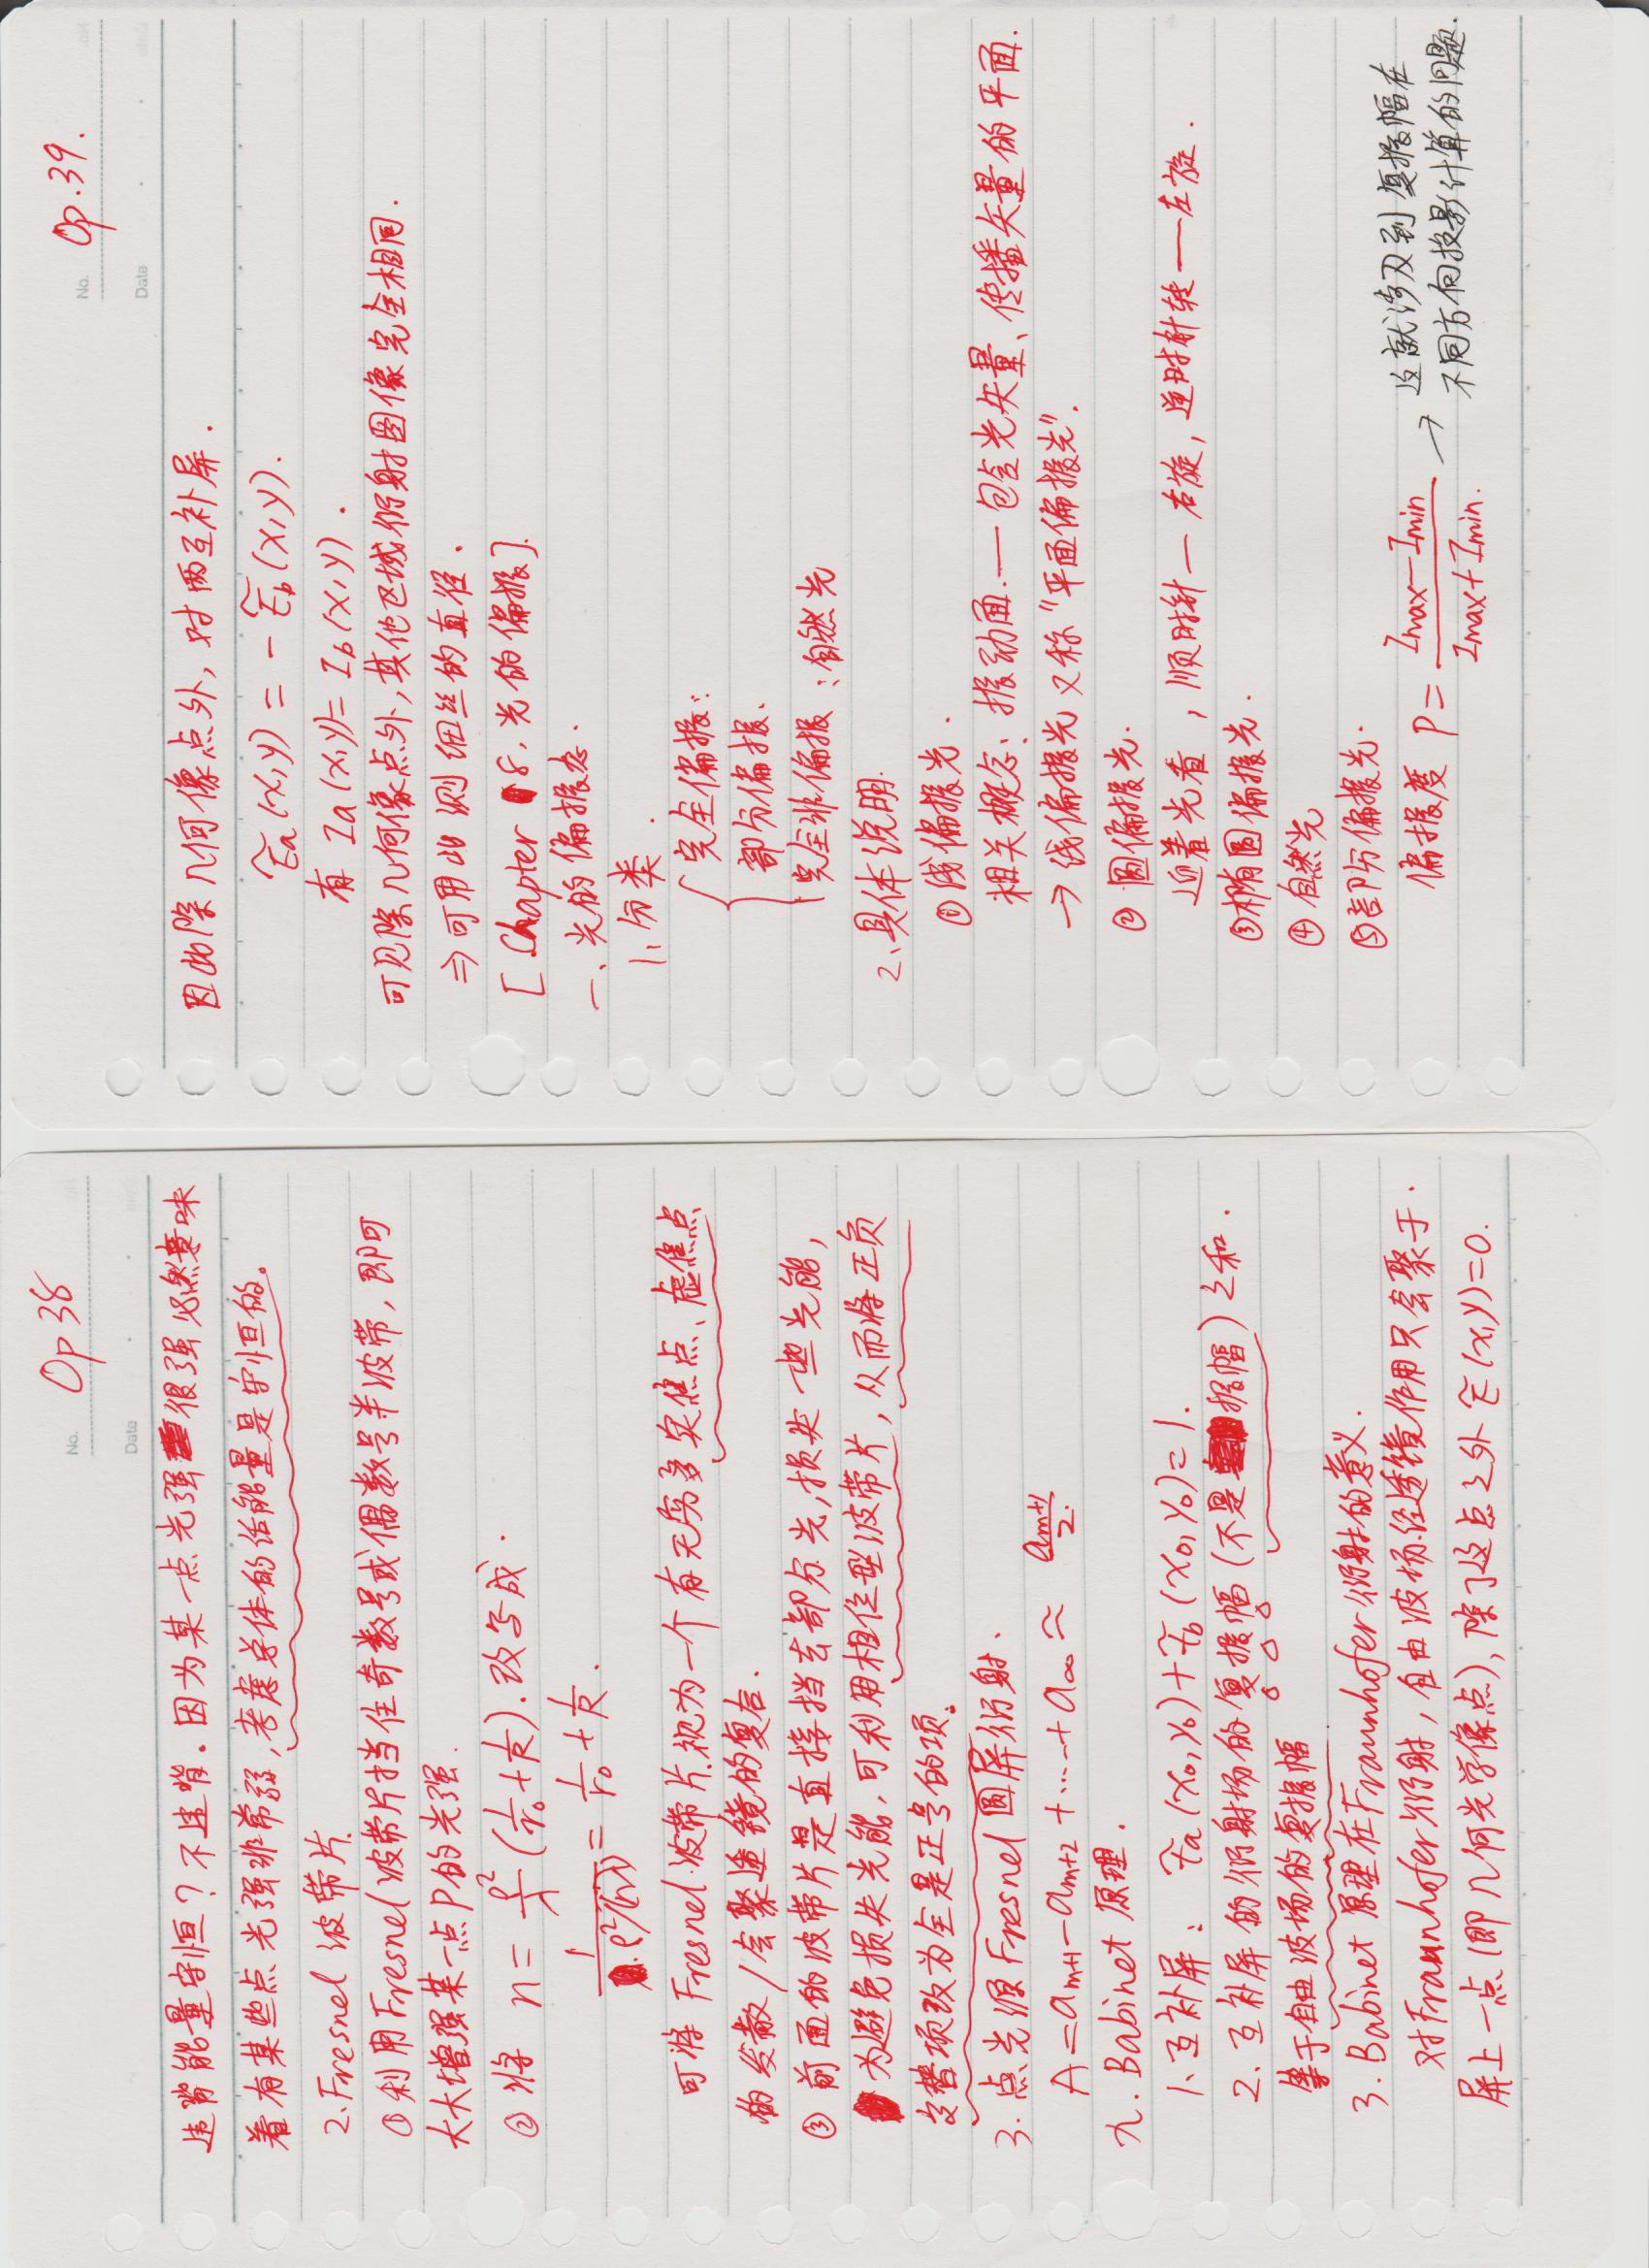 No. Op 38
Date
违背能量守恒？不违背．因为某一点光强很强必然意味
着有某些点光强非常弱，考虑学体的话能量是守恒的。
2. Fresnel 波带片
① 利用Fresnel波带片挡住奇数号或偶数号半波带，即可
大大增强某一点P的光强．
② 将 n = ρ²/λ (1/r₀ + 1/R)．改写成．
1/(ρ²/(nλ)) = 1/r₀ + 1/R．
可将 Fresnel 波带片视为一个有无穷多实焦点、虚焦点
的发散/会聚透镜的复合．
③ 前面的波带片是直接挡去部分光，损失一些光能，
为避免损失光能，可利用相位型波带片，从而将正负
交替项改为全是正号的项。
3. 点光源Fresnel圆屏衍射．
A = aₘ₊₁ − aₘ₊₂ + ⋯ + a∞ ≈ aₘ₊₁/2
九. Babinet 原理．
1、互补屏： t̃a (x₀, y₀) + t̃b (x₀, y₀) = 1.
2、互补屏的衍射场的复振幅（不是振幅）之和．
等于自由波场的复振幅
3. Babinet 原理在Fraunhofer衍射的意义．
对Fraunhofer衍射，自由波场经透镜作用只会聚于．
屏上一点（即几何光学像点），除了这点之外 Ẽ(x,y)=0.
No. Op.39.
Date
因此除几何像点外，对两互补屏．
Ẽa (x,y) = − Ẽb (x,y).
有 Ia (x,y) = Ib (x,y) .
可见除几何像点外，其他区域衍射图像完全相同．
⇒ 可用此测细丝的直径．
[ Chapter 8. 光的偏振].
一、光的偏振态．
1、分类．
完全偏振：
部分偏振．
完全非偏振：自然光
2、具体说明．
① 线偏振光．
相关概念：振动面．— 包含光矢量、传播矢量的平面．
→ 线偏振光又称“平面偏振光”．
② 圆偏振光．
迎着光看，顺时针—右旋，逆时针转——左旋．
③椭圆偏振光．
④ 自然光
⑤部分偏振光．
偏振度 P = (Imax − Imin)/(Imax + Imin). → 这就涉及到复振幅在
不同方向投影计算的问题．